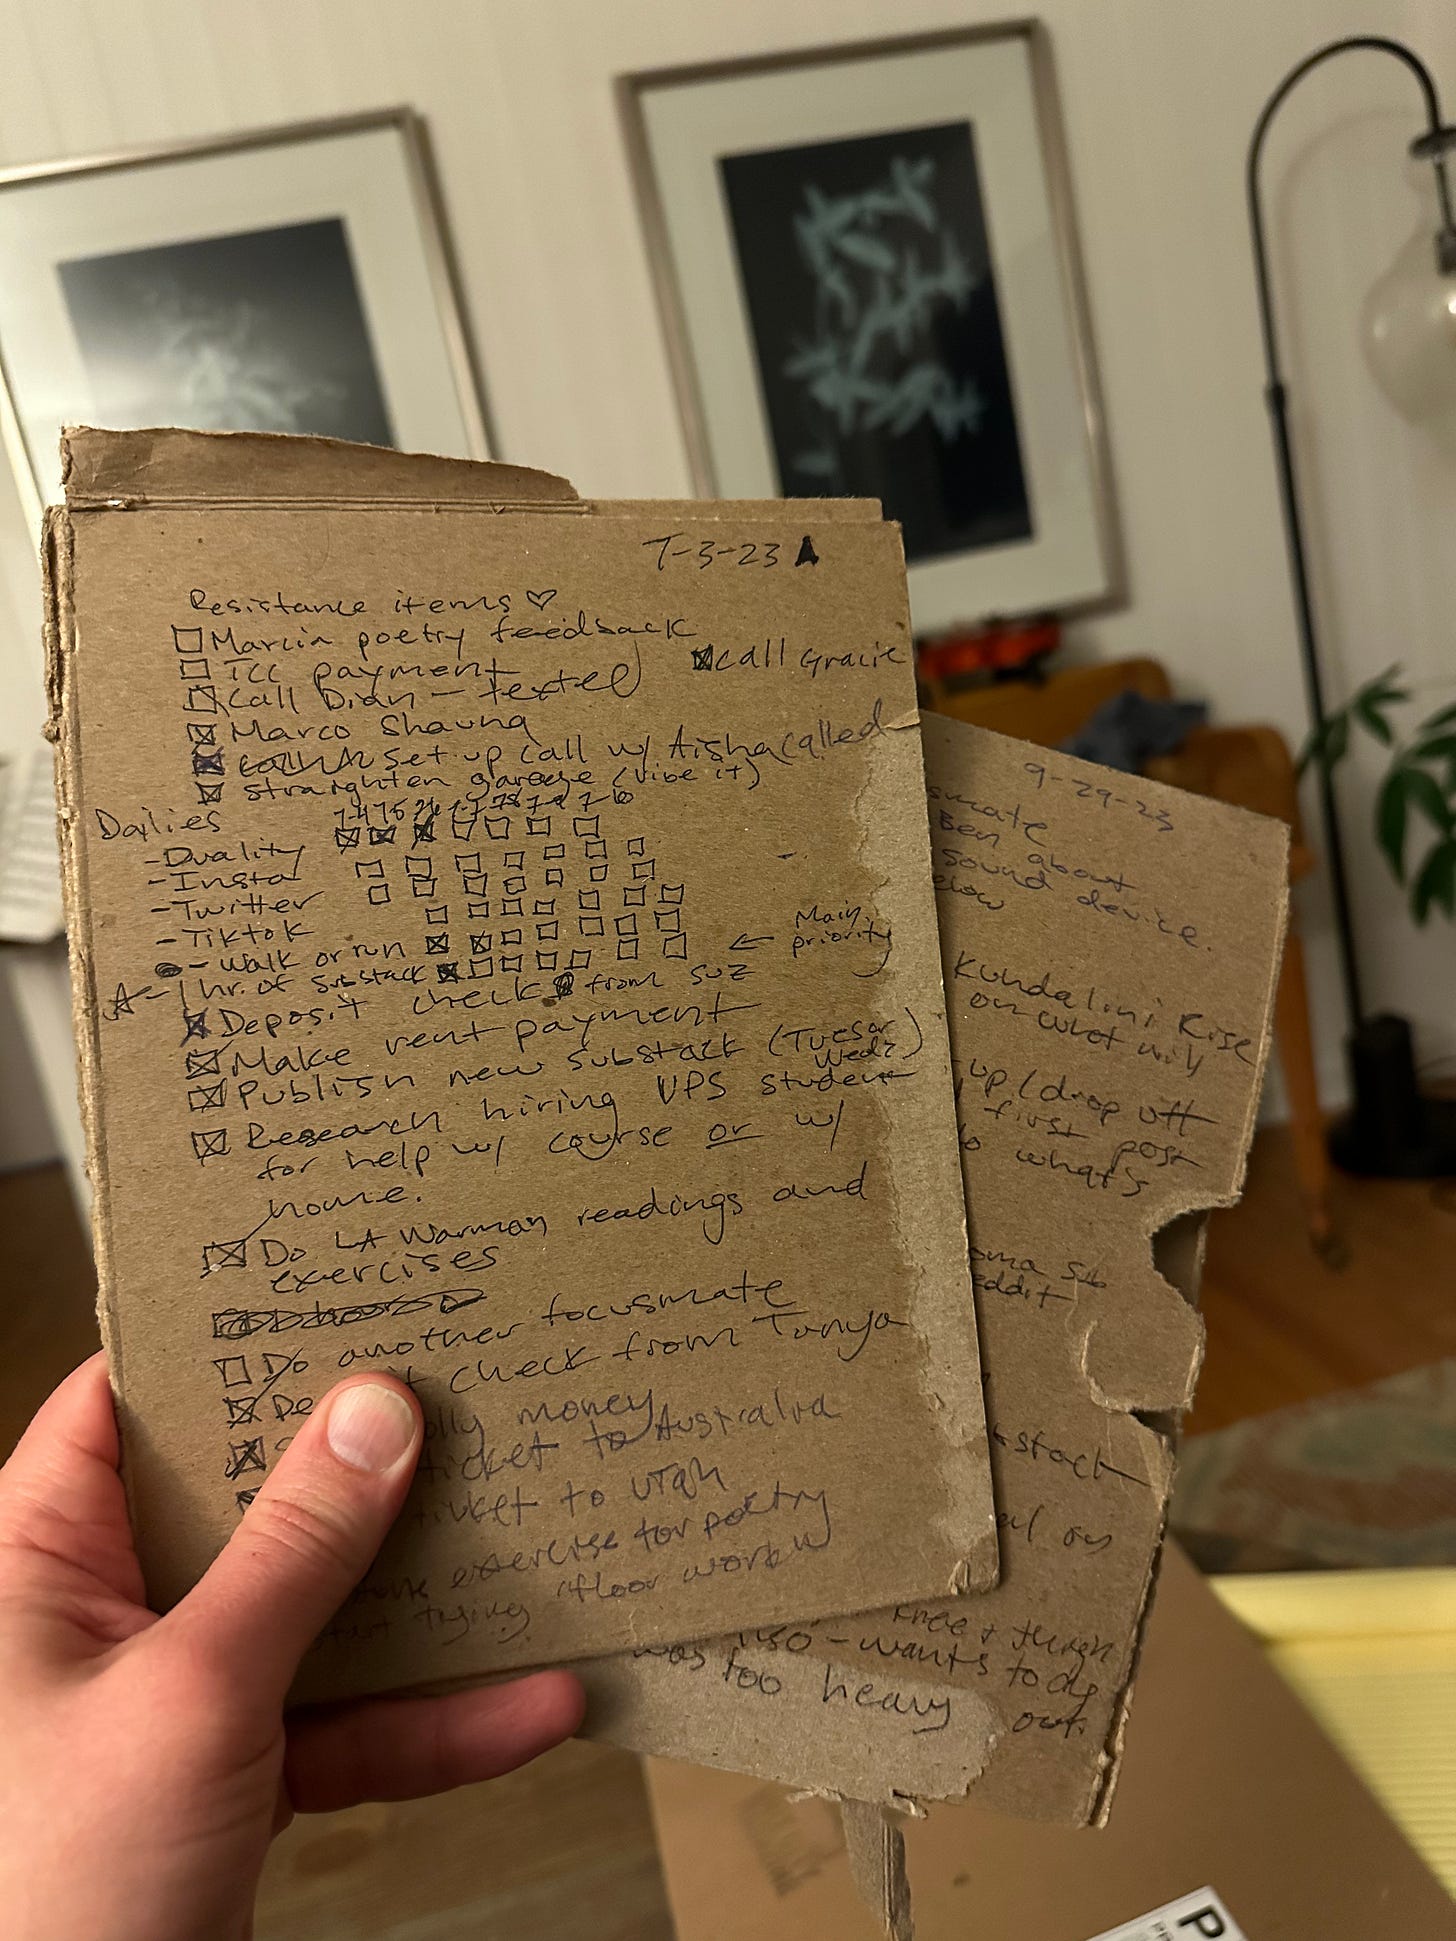 7-3-23 A
Resistance items ♡
☐ Marcia poetry feedback
☒ Call Gracie
☐ TCC payment
☒ Call Dian - texted
☒ Marco Shaung
☒ set up call w/ Aisha called
☒ straighten garage (vibe it)
Dailies
- Duality
- Insta
- Twitter
- Tiktok
- Walk or run
☆ - 1 hr. of substack
← Main
priority
☒ Deposit check from suz
☒ Make rent payment
☒ Publish new substack (Tues or
Wed?)
☒ Research hiring UPS student
for help w/ course or w/
home.
☒ Do LA Warman readings and
exercises
☐ Do another focusmate
☒ De t check from Tonya
☒ olly money
ticket to Australia
ticket to Utah
exercise for poetry
start trying "floor work"
9-29-23
smate
Ben about
sound device.
elow
Kundalini Rise
on what will
up/drop off
first post
o what's
oma sub
eddit
stack
al on
knee + thigh
also - wants to dig
was too heavy out.
P